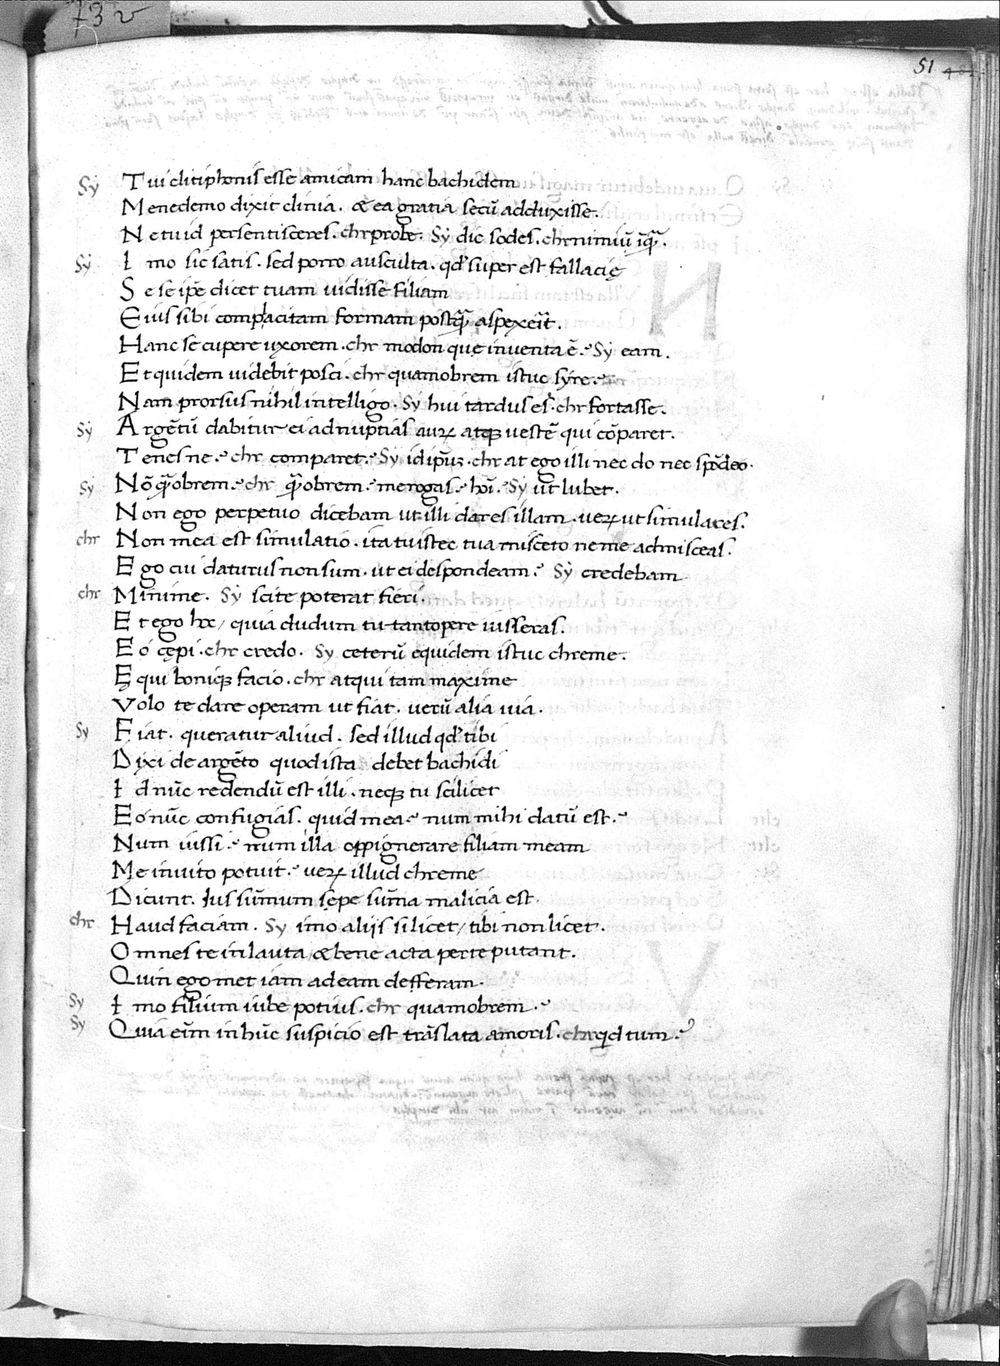 73 v
51
Sy Tui clitiphonis esse amicam hanc bachidem
Menedemo dixit clinia. & ea gratia secũ adduxisse.
Ne tu id persentisceres. chr probe. Sy dic sodes. chr nimiũ īꝗ̃.
Sy Imo sic satis. sed porro ausculta. qd' super est fallacię
Se se ip̃e dicet tuam uidisse filiam
Eius sibi complacitam formam postꝗ̃ aspexeit̃.
Hanc se cupere uxorem. chr modon que inventa ẽ. Sy eam.
Et quidem uidebit posci. chr quamobrem istuc syre.
Nam prorsus nihil intelligo. Sy hui tardus es. chr fortasse.
Sy Argẽtũ dabitur ei ad nuptias auꝝ atqꝫ uestẽ qui cõparet.
Tenes ne. chr comparet. Sy id ip̃uꝫ. chr at ego illi nec do nec spõdeo.
Sy Nõ ꝗ̃obrem. chr ꝗ̃obrem. me rogas. hoı̃. Sy ut lubet.
Non ego perpetuo dicebam ut illi dares illam. ueꝝ ut simulares.
chr Non mea est simulatio. ita tu istec tua misceto ne me admisceas.
Ego cui daturus non sum. ut ei despondeam. Sy credebam
chr Minime. Sy scite poterat fieri.
Et ego hoc / quia dudum tu tantopere iusseras.
Eo cępi. chr credo. Sy ceterũ equidem istuc chreme.
Ęqui boniqꝫ facio. chr atqui tam maxime
Volo te dare operam ut fiat. uerũ alia uia.
Sy Fiat. queratur aliud. sed illud qd' tibi
Dixi de argẽto quod ista debet bachidi
Id nũc redendũ est illi. neqꝫ tu scilicet
Eo nũc confugias. quid mea. num mihi datũ est.
Num iussi. num illa oppignerare filiam meam
Me inuito potuit. ueꝝ illud chreme
Dicunt. Ius sũmum sepe sũma malicia est.
chr Haud faciam. Sy imo alijs si licet / tibi non licet.
Omnes te in lauta & bene acta parte putant.
Quin egomet iam ad eam defferam.
Sy Imo filium iube potius. chr quamobrem.
Sy Quia eũm in hũc suspicio est trãslata amoris. chr qid tum.